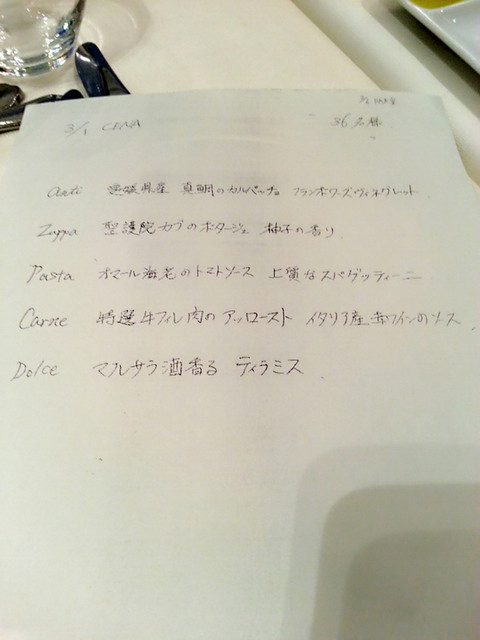 3/1 CENA 36名様
Anti 愛媛県産 真鯛のカルパッチョ フランボワーズヴィネグレット
Zuppa 聖護院カブのポタージュ 柚子の香り
Pasta オマール海老のトマトソース 上質なスパゲッティーニ
Carne 特選牛フィレ肉のアッロースト イタリア産赤ワインのソース
Dolce マルサラ酒香る ティラミス